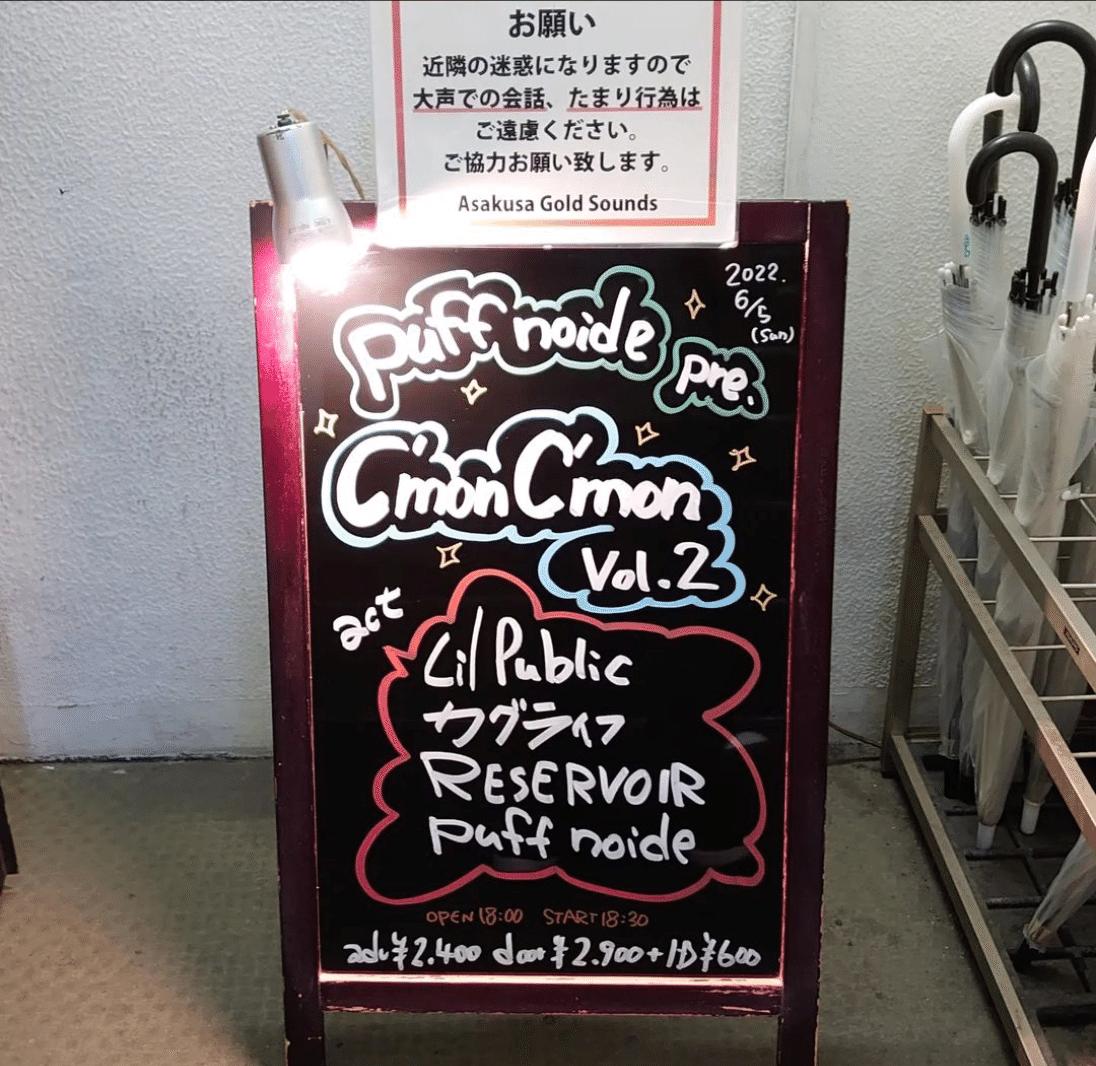 お願い
近隣の迷惑になりますので
大声での会話、たまり行為は
ご遠慮ください。
ご協力お願い致します。
Asakusa Gold Sounds
2022.
6/5
(Sun)
puff noide
pre.
C'mon C'mon
Vol.2
act
Lil Public
カグライフ
RESERVOIR
puff noide
OPEN 18:00 START 18:30
adv ¥2.400 door ¥2.900+1D ¥600